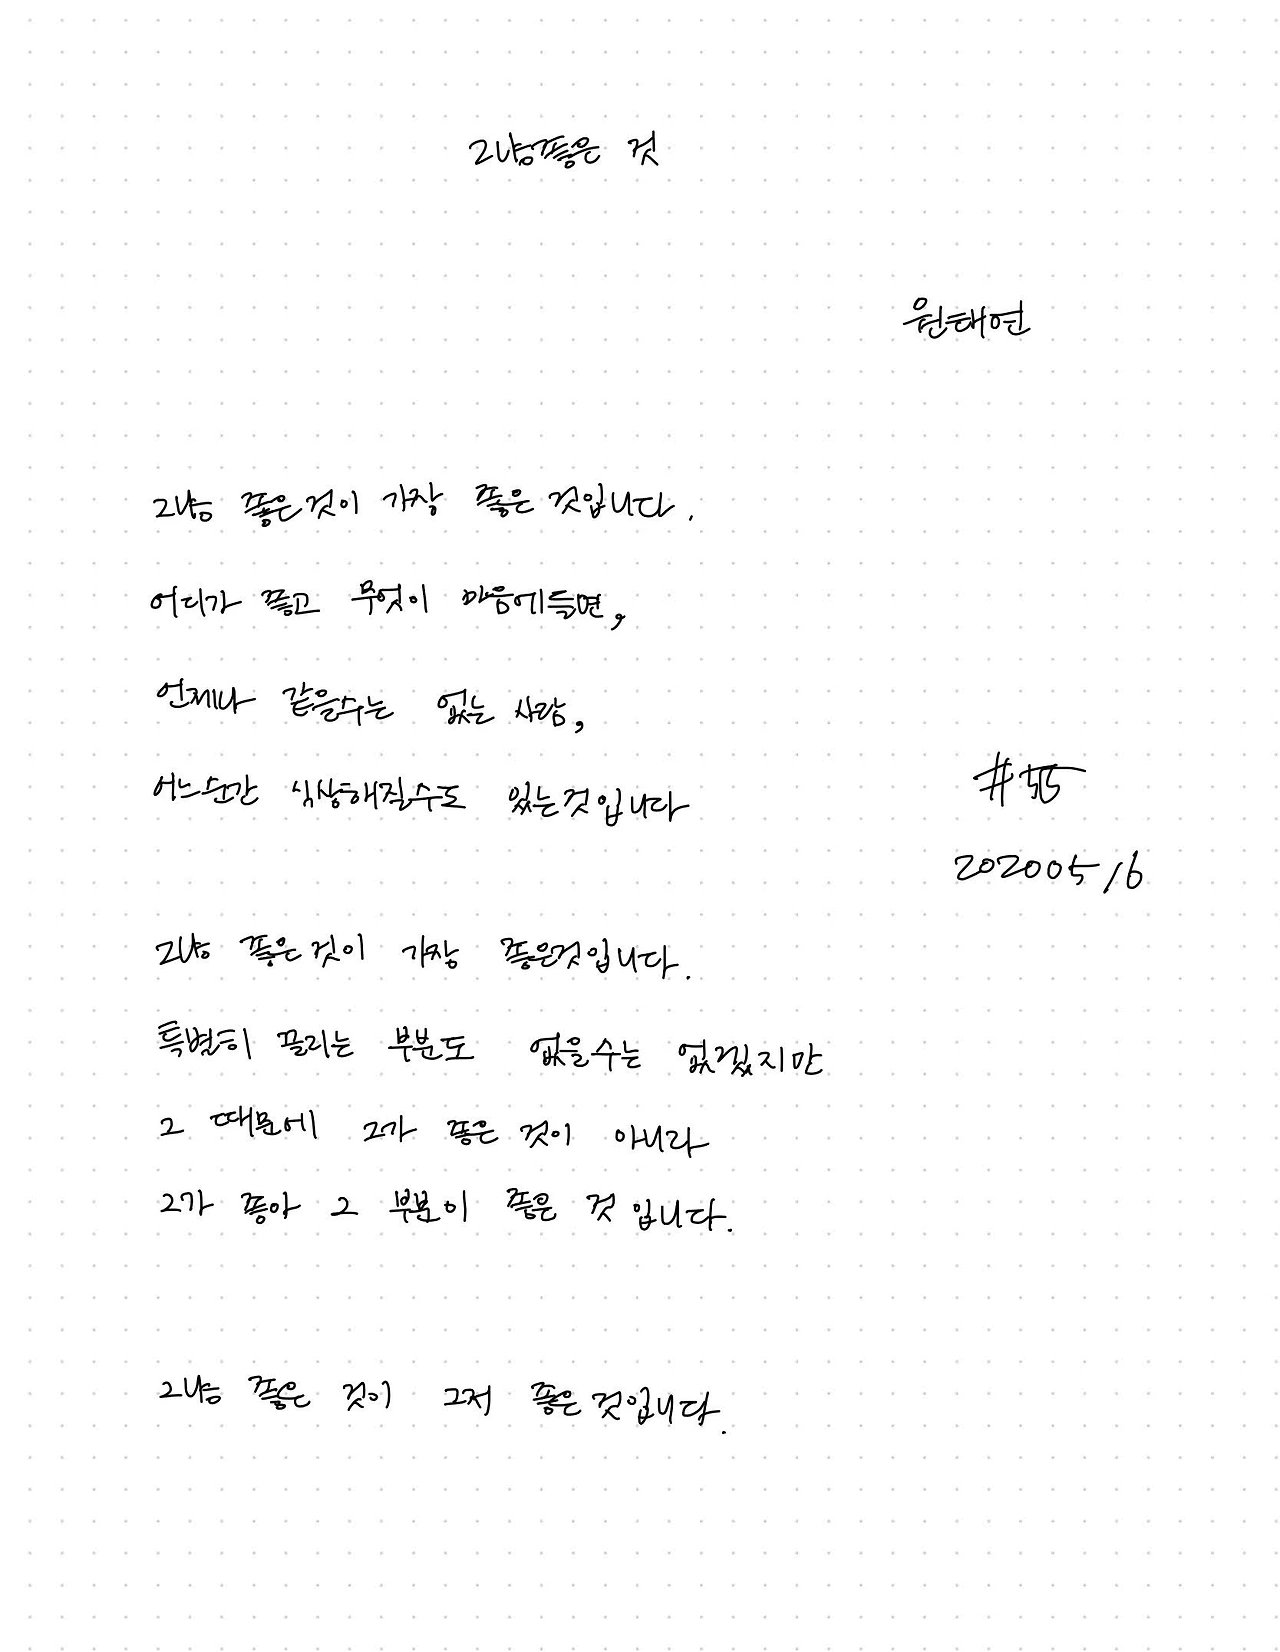 그냥좋은 것
원태연
그냥 좋은것이 가장 좋은 것입니다.
어디가 좋고 무엇이 마음에들면,
언제나 같을수는 없는 사람,
어느순간 식상해질수도 있는것입니다
#55
20200516
그냥 좋은것이 가장 좋은것입니다.
특별히 끌리는 부분도 없을수는 없겠지만
그 때문에 그가 좋은 것이 아니라
그가 좋아 그 부분이 좋은 것 입니다.
그냥 좋은 것이 그저 좋은것입니다.